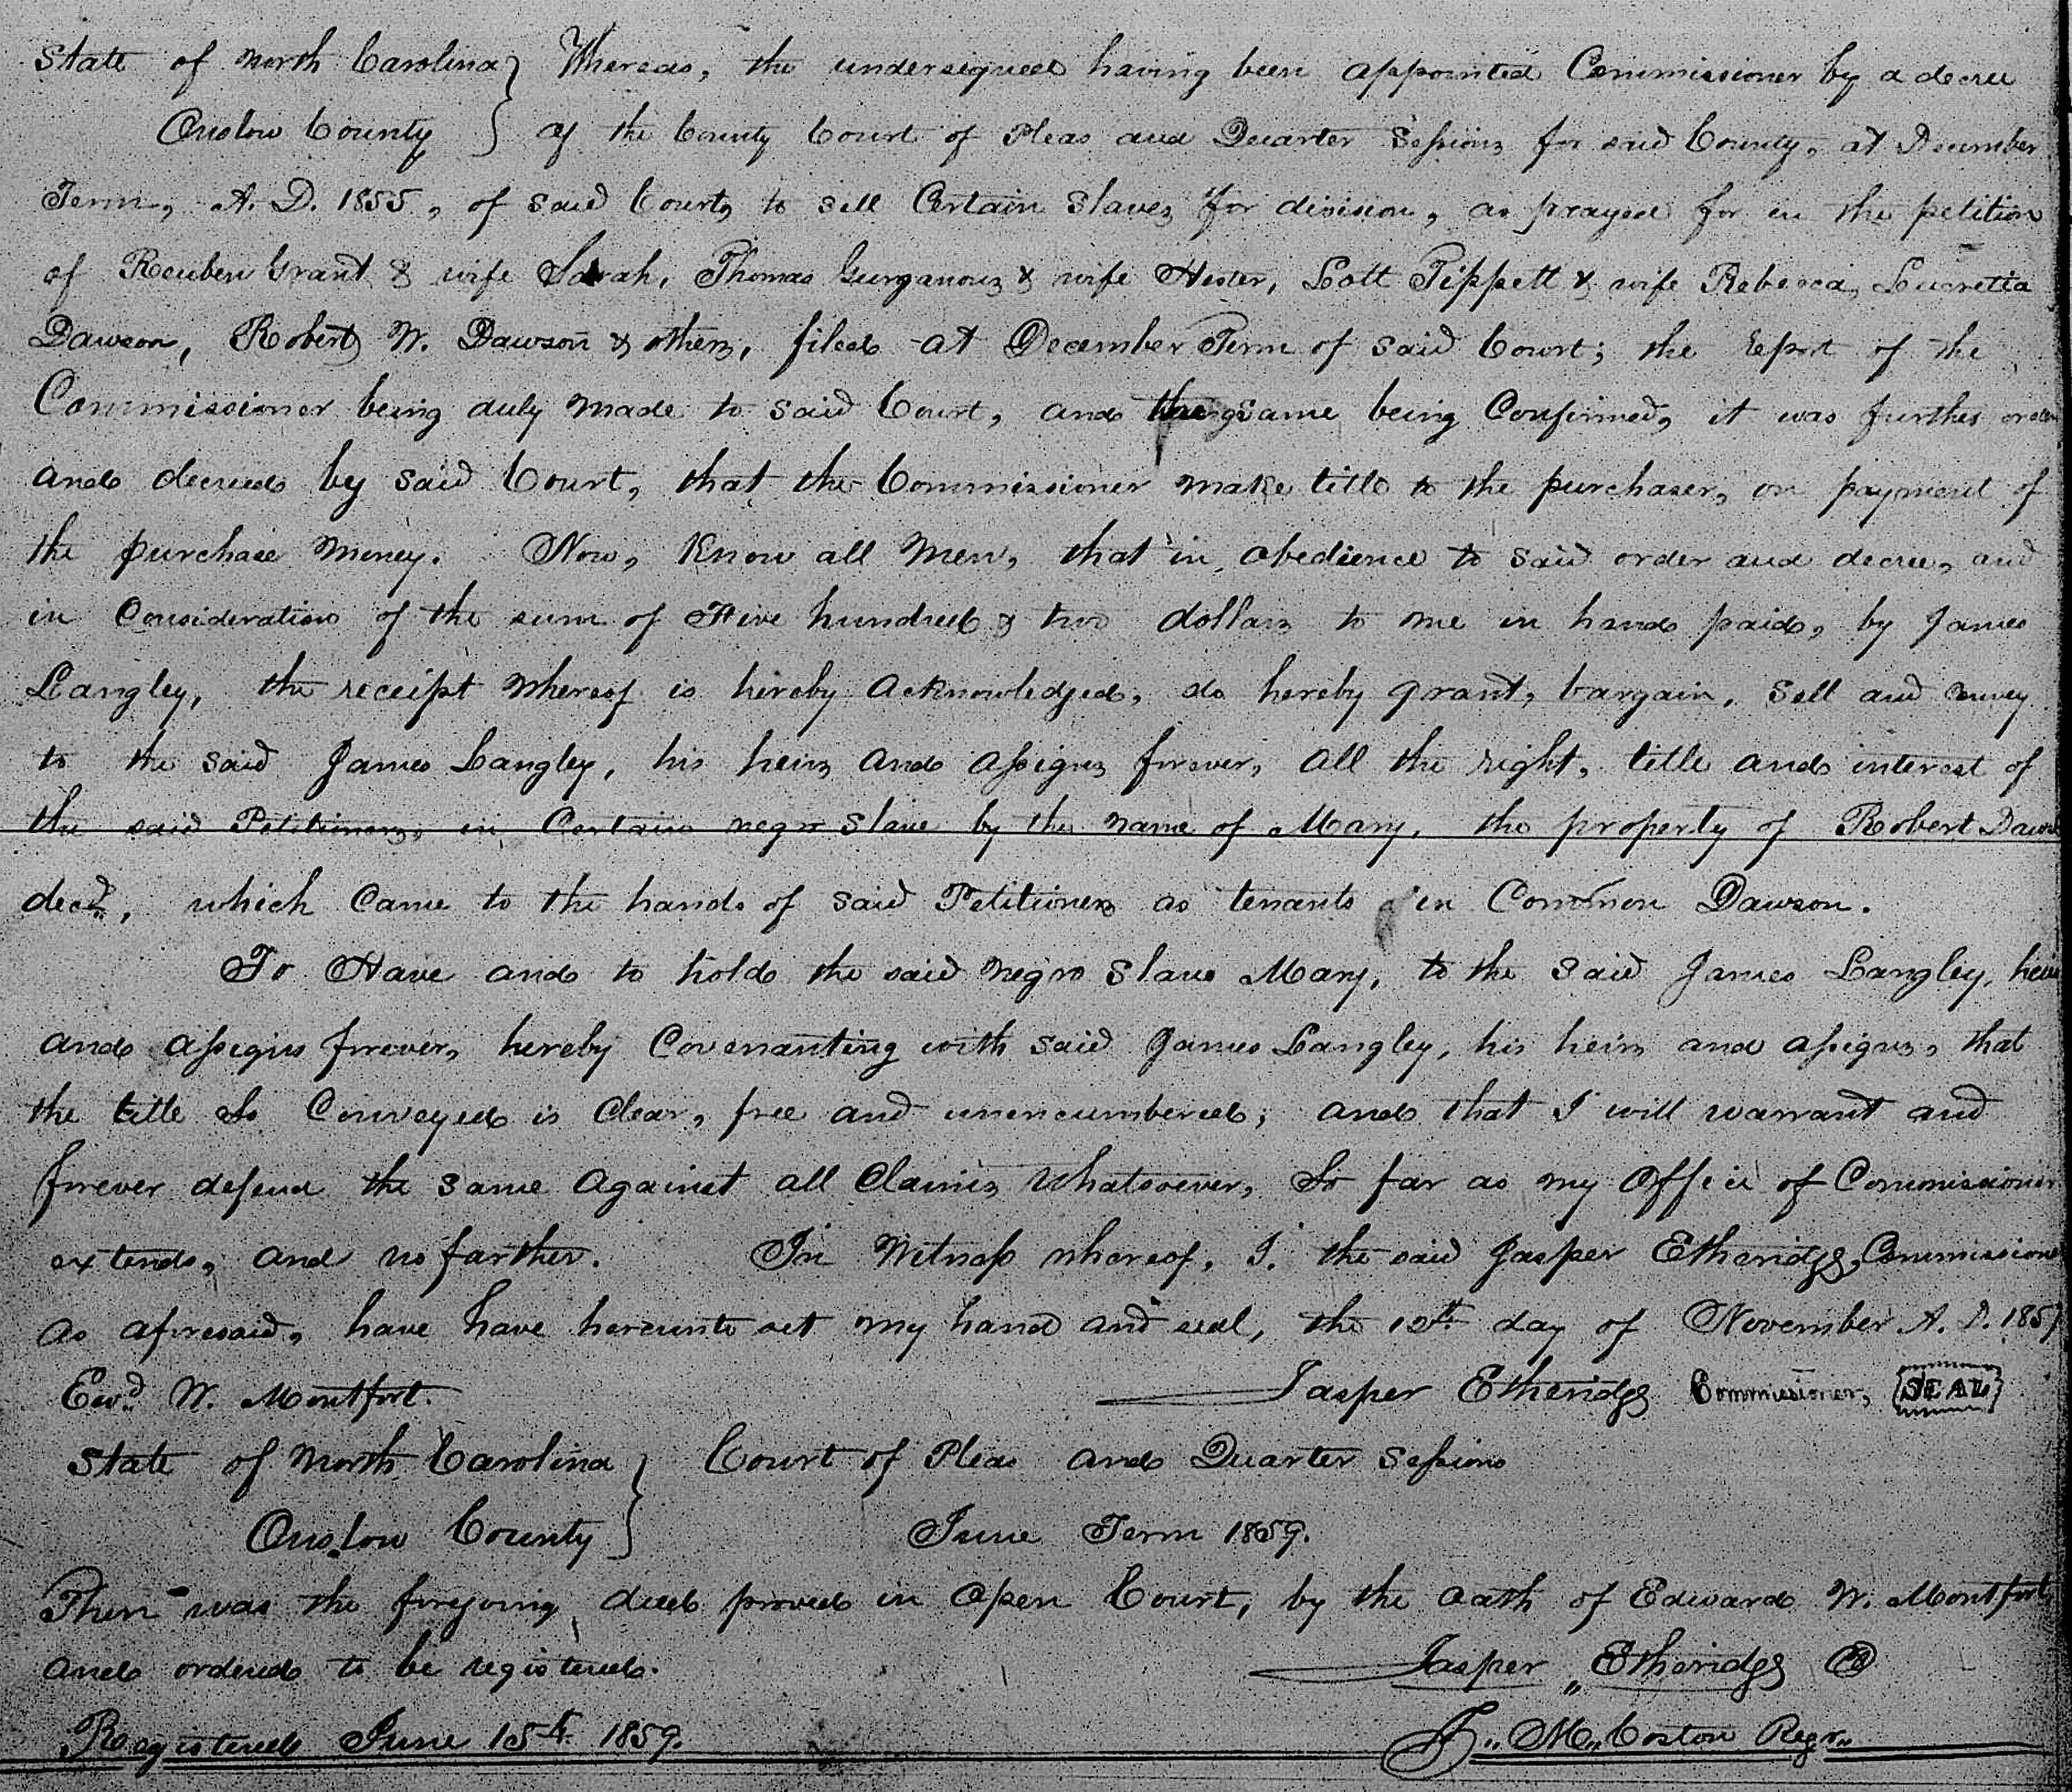 State of North Carolina } Whereas, the undersigned having been appointed Commissioner by a decree
Onslow County } of the County Court of Pleas and Quarter Sessions for said County, at December
Term, A. D. 1855, of said Court, to sell Certain Slaves for division, as prayed for in the petition
of Reuben Grant & wife Sarah, Thomas Gurganous & wife Hester, Lott Tippett & wife Rebecca, Lucretia
Dawson, Robert W. Dawson & others, filed at December Term of said Court; the report of the
Commissioner being duly made to said Court, and the same being Confirmed, it was further order
and decreed by said Court, that the Commissioner make title to the purchaser, on payment of
the purchase money. Now, Know all Men, that in obedience to said order and decree, and
in Consideration of the sum of Five hundred & two dollars to me in hand paid, by James
Langley, the receipt whereof is hereby acknowledged, do hereby grant, bargain, sell and convey
to the said James Langley, his heirs and assigns forever, all the right, title and interest of
the said Petitioners, in Certain negro slave by the name of Mary, the property of Robert Dawson
decd., which came to the hands of said Petitioners as tenants in Common Dawson.
To Have and to hold the said negro slave Mary, to the said James Langley, heirs
and assigns forever, hereby Covenanting with said James Langley, his heirs and assigns, that
the title so Conveyed is Clear, free and unencumbered; and that I will warrant and
forever defend the same against all Claims whatsoever, so far as my Office of Commissioner
extends, and no farther. In Witness whereof, I, the said Jasper Etheridge, Commissioner
as aforesaid, have have hereunto set my hand and seal, the 12th day of November A. D. 1857
Ewd. W. Montfort. Jasper Etheridge Commissioner, {SEAL}
State of North Carolina } Court of Pleas and Quarter Sessions
Onslow County } June Term 1859.
Then was the foregoing deed proved in Open Court, by the oath of Edward W. Montfort,
and ordered to be registered. Jasper Etheridge
Registered June 15th 1859. J. M. Coston Regr.